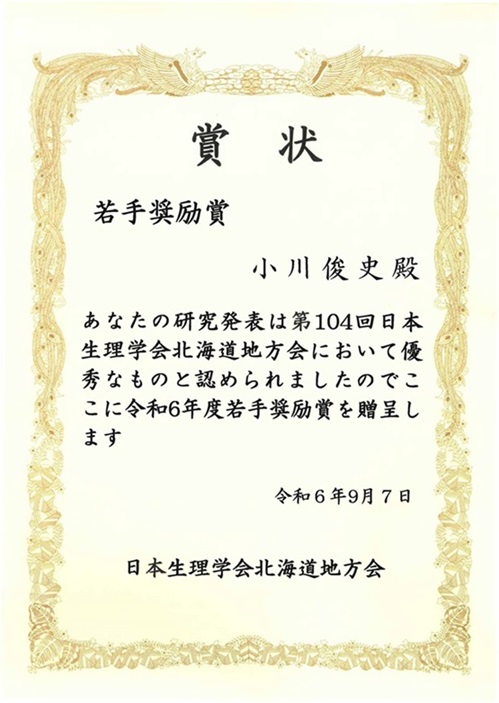 賞状
若手奨励賞
小川俊史殿
あなたの研究発表は第104回日本
生理学会北海道地方会において優
秀なものと認められましたのでこ
こに令和6年度若手奨励賞を贈呈し
ます
令和6年9月7日
日本生理学会北海道地方会